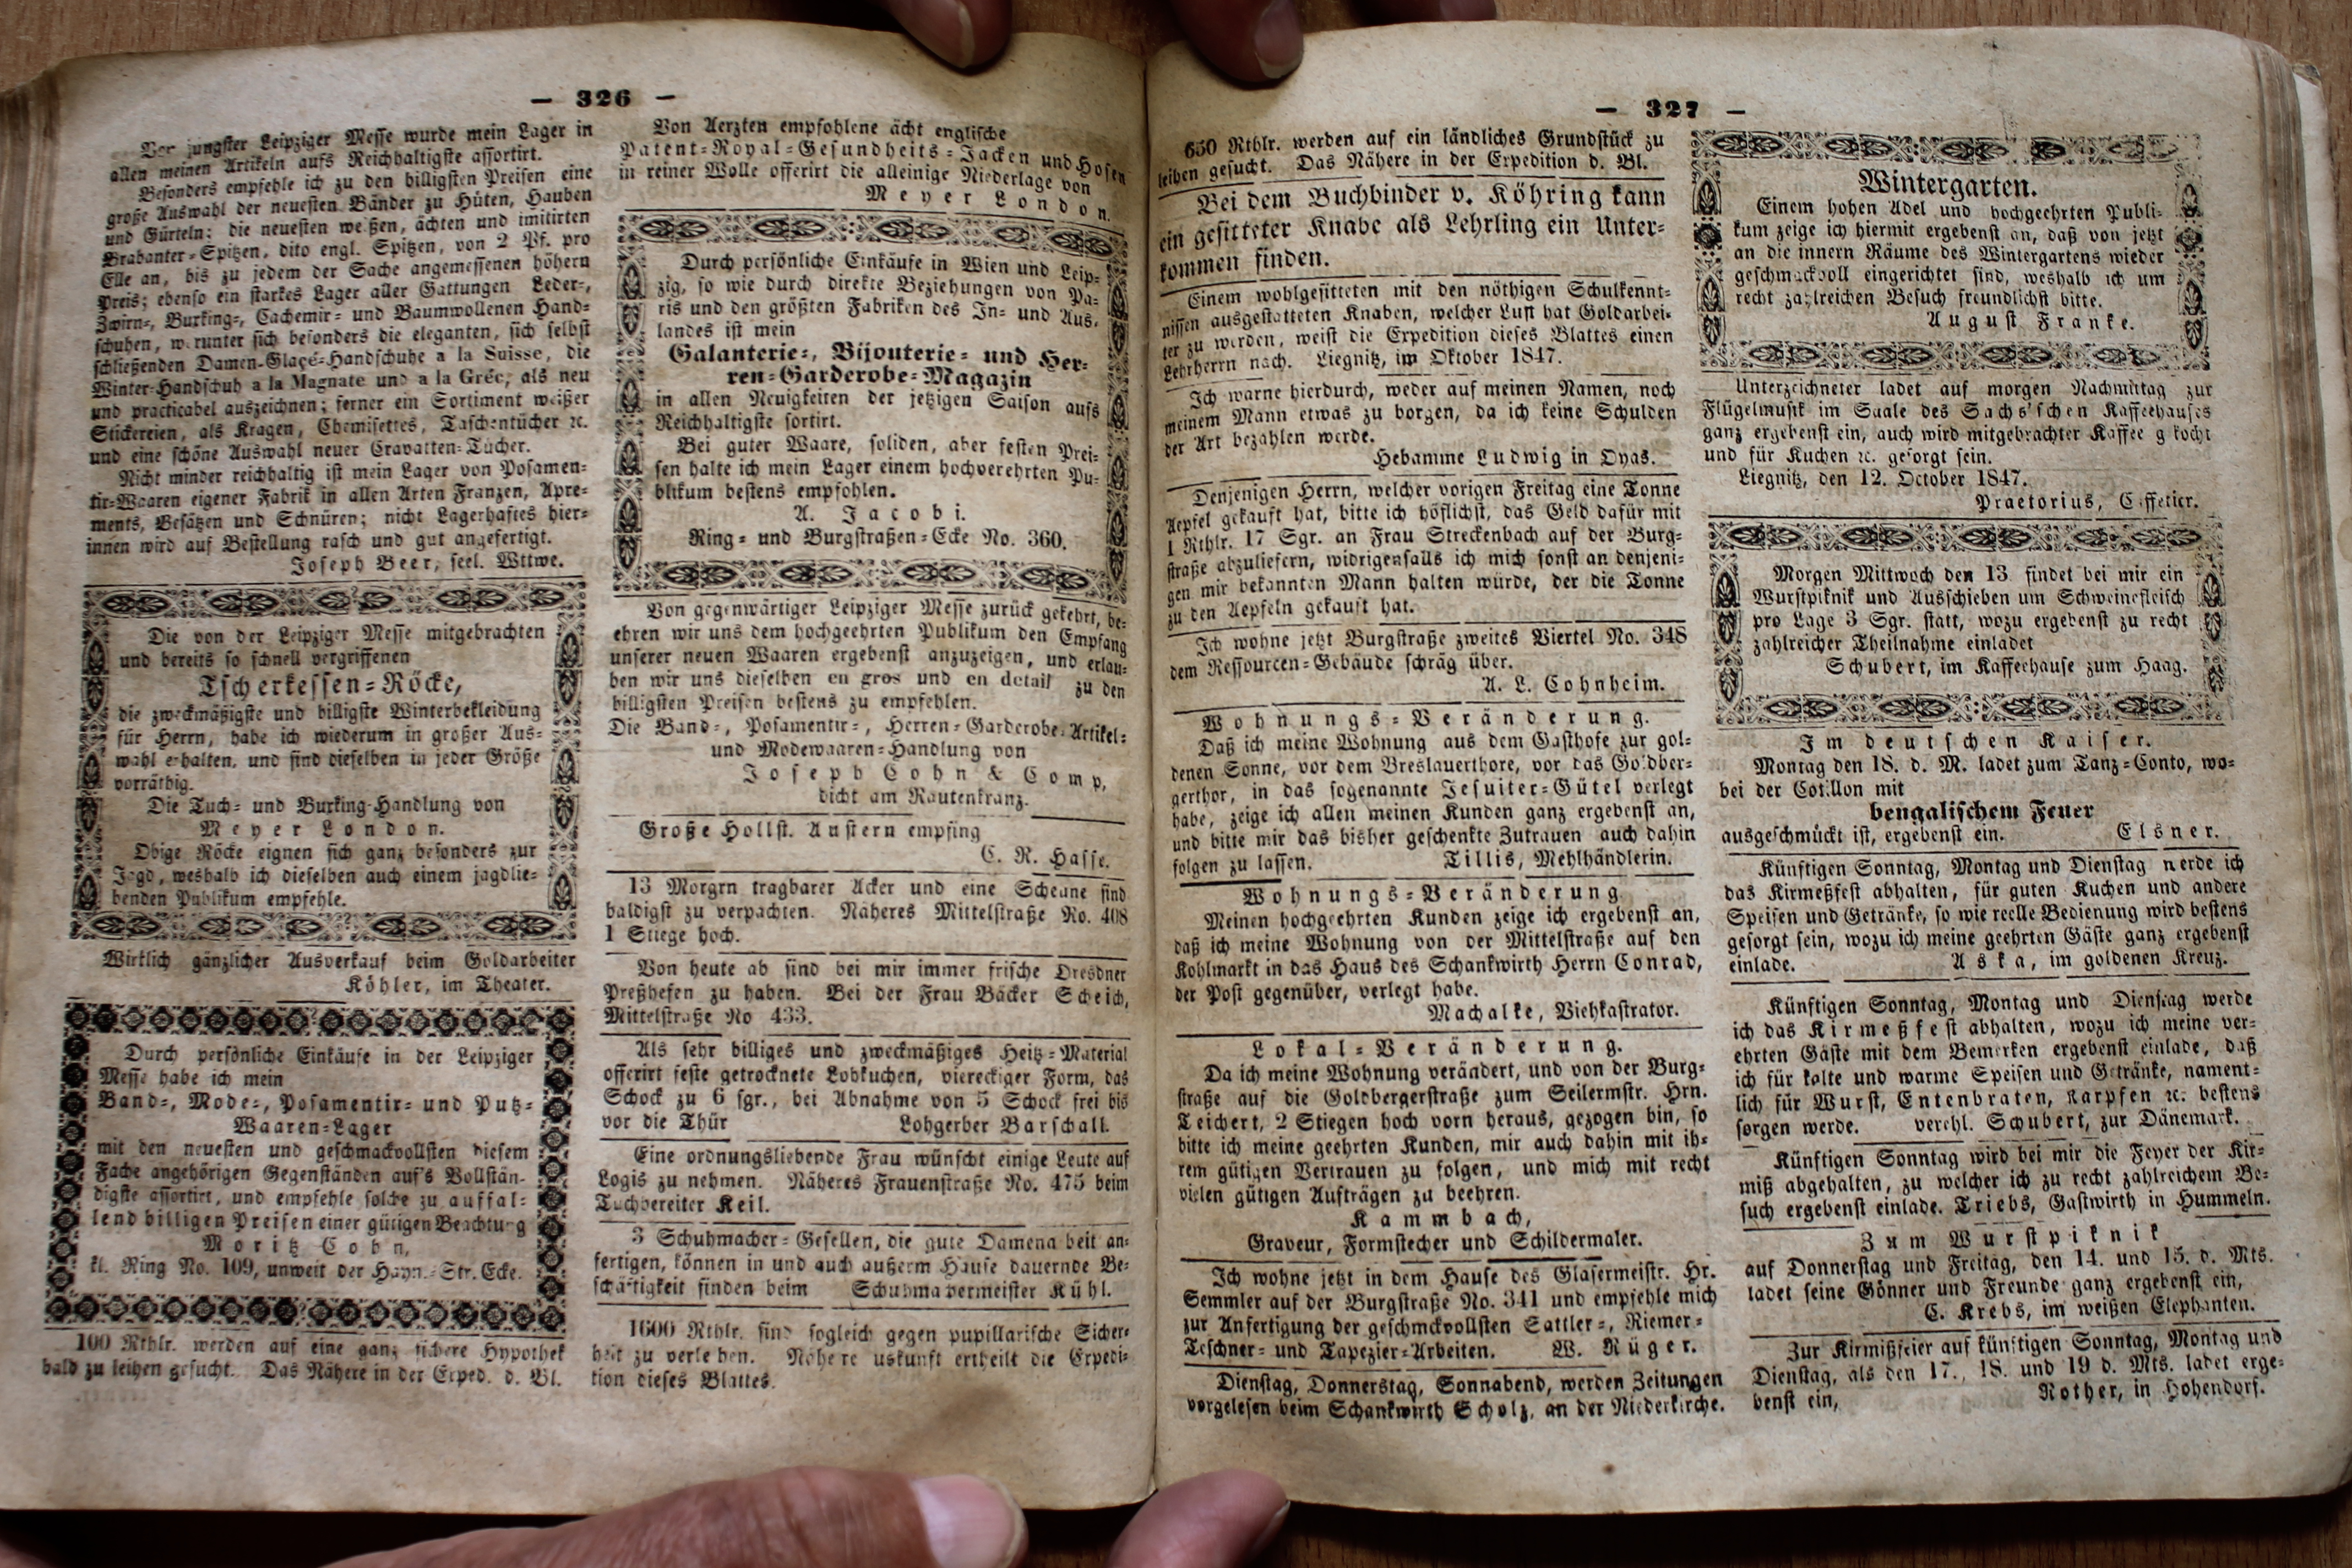 — 326 —
jüngster Leipziger Messe wurde mein Lager in
allen meinen Artikeln aufs Reichhaltigste assortirt.
Besonders empfehle ich zu den billigsten Preisen eine
große Auswahl der neuesten Bänder zu Hüten, Hauben
und Gürteln; die neuesten weißen, ächten und imitirten
Brabanter-Spitzen, dito engl. Spitzen, von 2 Pf. pro
Elle an, bis zu jedem der Sache angemessenen höhern
Preis; ebenso ein starkes Lager aller Gattungen Leder-,
Zwirn-, Burking-, Cachemir- und Baumwollenen Hand-
schuhen, worunter sich besonders die eleganten, sich selbst
schließenden Damen-Glaçé-Handschuhe a la Suisse, die
Winter-Handschuh a la Magnate und a la Gréc, als neu
und practicabel auszeichnen; ferner ein Sortiment weißer
Stickereien, als Kragen, Chemisettes, Taschentücher ꝛc.
und eine schöne Auswahl neuer Cravatten-Tücher.
Nicht minder reichhaltig ist mein Lager von Posamen-
tir-Waaren eigener Fabrik in allen Arten Franzen, Apre-
ments, Besätzen und Schnüren; nicht Lagerhaftes hier-
innen wird auf Bestellung rasch und gut angefertigt.
Joseph Beer, seel. Wttwe.
Die von der Leipziger Messe mitgebrachten
und bereits so schnell vergriffenen
Tscherkessen-Röcke,
die zweckmäßigste und billigste Winterbekleidung
für Herrn, habe ich wiederum in großer Aus-
wahl erhalten, und sind dieselben in jeder Größe
vorräthig.
Die Tuch- und Burking-Handlung von
Meyer London.
Obige Röcke eignen sich ganz besonders zur
Jagd, weshalb ich dieselben auch einem jagdlie-
benden Publikum empfehle.
Wirklich gänzlicher Ausverkauf beim Goldarbeiter
Köhler, im Theater.
Durch persönliche Einkäufe in der Leipziger
Messe habe ich mein
Band-, Mode-, Posamentir- und Putz-
Waaren-Lager
mit den neuesten und geschmackvollsten diesem
Fache angehörigen Gegenständen auf's Vollstän-
digste assortirt, und empfehle solche zu auffal-
lend billigen Preisen einer gütigen Beachtung
Moritz Cohn,
kl. Ring No. 109, unweit der Hayn.-Str. Ecke.
100 Rthlr. werden auf eine ganz sichere Hypothek
bald zu leihen gesucht. Das Nähere in der Exped. d. Bl.
Von Aerzten empfohlene ächt englische
Patent-Royal-Gesundheits-Jacken und Hosen
in reiner Wolle offerirt die alleinige Niederlage von
Meyer London.
Durch persönliche Einkäufe in Wien und Leip-
zig, so wie durch direkte Beziehungen von Pa-
ris und den größten Fabriken des In- und Aus-
landes ist mein
Galanterie-, Bijouterie- und Her-
ren-Garderobe-Magazin
in allen Neuigkeiten der jetzigen Saison aufs
Reichhaltigste sortirt.
Bei guter Waare, soliden, aber festen Prei-
sen halte ich mein Lager einem hochverehrten Pu-
blikum bestens empfohlen.
A. Jacobi.
Ring- und Burgstraßen-Ecke No. 360.
Von gegenwärtiger Leipziger Messe zurück gekehrt, be-
ehren wir uns dem hochgeehrten Publikum den Empfang
unserer neuen Waaren ergebenst anzuzeigen, und erlau-
ben wir uns dieselben en gros und en detail zu den
billigsten Preisen bestens zu empfehlen.
Die Band-, Posamentir-, Herren-Garderobe-Artikel-
und Modewaaren-Handlung von
Joseph Cohn & Comp,
dicht am Rautenkranz.
Große Hollst. Austern empfing
C. R. Hasse.
13 Morgrn tragbarer Acker und eine Scheune sind
baldigst zu verpachten. Näheres Mittelstraße No. 408
1 Stiege hoch.
Von heute ab sind bei mir immer frische Dresdner
Preßhefen zu haben. Bei der Frau Bäcker Scheich,
Mittelstraße No 433.
Als sehr billiges und zweckmäßiges Heitz-Material
offerirt feste getrocknete Lohkuchen, viereckiger Form, das
Schock zu 6 sgr., bei Abnahme von 5 Schock frei bis
vor die Thür Lohgerber Barschall.
Eine ordnungsliebende Frau wünscht einige Leute auf
Logis zu nehmen. Näheres Frauenstraße No. 475 beim
Tuchbereiter Keil.
3 Schuhmacher-Gesellen, die gute Damena beit an-
fertigen, können in und auch außerm Hause dauernde Be-
schäftigkeit finden beim Schuhmachermeister Kühl.
1600 Rthlr. sind sogleich gegen pupillarische Sicher-
heit zu verleihen. Nähere uskunft ertheilt die Expedi-
tion dieses Blattes.
— 327 —
650 Rthlr. werden auf ein ländliches Grundstück zu
leihen gesucht. Das Nähere in der Expedition d. Bl.
Bei dem Buchbinder v. Köhring kann
ein gesitteter Knabe als Lehrling ein Unter-
kommen finden.
Einem wohlgesitteten mit den nöthigen Schulkennt-
nissen ausgestatteten Knaben, welcher Lust hat Goldarbei-
ter zu werden, weist die Expedition dieses Blattes einen
Lehrherrn nach. Liegnitz, im Oktober 1847.
Ich warne hierdurch, weder auf meinen Namen, noch
meinem Mann etwas zu borgen, da ich keine Schulden
der Art bezahlen werde.
Hebamme Ludwig in Oyas.
Denjenigen Herrn, welcher vorigen Freitag eine Tonne
Aepfel gekauft hat, bitte ich höflichst, das Geld dafür mit
1 Rthlr. 17 Sgr. an Frau Streckenbach auf der Burg-
straße abzuliefern, widrigenfalls ich mich sonst an denjeni-
gen mir bekannten Mann halten würde, der die Tonne
zu den Aepfeln gekauft hat.
Ich wohne jetzt Burgstraße zweites Viertel No. 348
dem Ressourcen-Gebäude schräg über.
A. L. Cohnheim.
Wohnungs-Veränderung.
Daß ich meine Wohnung aus dem Gasthofe zur gol-
denen Sonne, vor dem Breslauerthore, vor das Goldber-
gerthor, in das sogenannte Jesuiter-Gütel verlegt
habe, zeige ich allen meinen Kunden ganz ergebenst an,
und bitte mir das bisher geschenkte Zutrauen auch dahin
folgen zu lassen. Tillis, Mehlhändlerin.
Wohnungs-Veränderung
Meinen hochgeehrten Kunden zeige ich ergebenst an,
daß ich meine Wohnung von der Mittelstraße auf den
Kohlmarkt in das Haus des Schankwirth Herrn Conrad,
der Post gegenüber, verlegt habe.
Machalke, Viehkastrator.
Lokal-Veränderung.
Da ich meine Wohnung verändert, und von der Burg-
straße auf die Goldbergerstraße zum Seilermstr. Hrn.
Teichert, 2 Stiegen hoch vorn heraus, gezogen bin, so
bitte ich meine geehrten Kunden, mir auch dahin mit ih-
rem gütigen Vertrauen zu folgen, und mich mit recht
vielen gütigen Aufträgen zu beehren.
Kammbach,
Graveur, Formstecher und Schildermaler.
Ich wohne jetzt in dem Hause des Glasermeistr. Hr.
Semmler auf der Burgstraße No. 341 und empfehle mich
zur Anfertigung der geschmckvollsten Sattler-, Riemer-
Teschner- und Tapezier-Arbeiten. W. Rüger.
Dienstag, Donnerstag, Sonnabend, werden Zeitungen
vorgelesen beim Schankwirth Scholz, an der Niederkirche.
Wintergarten.
Einem hohen Adel und hochgeehrten Publi-
kum zeige ich hiermit ergebenst an, daß von jetzt
an die innern Räume des Wintergartens wieder
geschmackvoll eingerichtet sind, weshalb ich um
recht zahlreichen Besuch freundlichst bitte.
August Franke.
Unterzeichneter ladet auf morgen Nachmittag zur
Flügelmusik im Saale des Sachs'schen Kaffeehauses
ganz ergebenst ein, auch wird mitgebrachter Kaffee g kocht
und für Kuchen ꝛc. gesorgt sein.
Liegnitz, den 12. October 1847.
Praetorius, C ffetier.
Morgen Mittwoch den 13 findet bei mir ein
Wurstpiknik und Ausschieben um Schweinefleisch
pro Lage 3 Sgr. statt, wozu ergebenst zu recht
zahlreicher Theilnahme einladet
Schubert, im Kaffeehause zum Haag.
Im deutschen Kaiser.
Montag den 18. d. M. ladet zum Tanz-Conto, wo-
bei der Cotillon mit
bengalischem Feuer
ausgeschmückt ist, ergebenst ein. Elsner.
Künftigen Sonntag, Montag und Dienstag werde ich
das Kirmeßfest abhalten, für guten Kuchen und andere
Speisen und Getränke, so wie reelle Bedienung wird bestens
gesorgt sein, wozu ich meine geehrten Gäste ganz ergebenst
einlade. Aska, im goldenen Kreuz.
Künftigen Sonntag, Montag und Dienstag werde
ich das Kirmeßfest abhalten, wozu ich meine ver-
ehrten Gäste mit dem Bemerken ergebenst einlade, daß
ich für kalte und warme Speisen und Getränke, nament-
lich für Wurst, Entenbraten, Karpfen ꝛc. bestens
sorgen werde. verehl. Schubert, zur Dänemark.
Künftigen Sonntag wird bei mir die Feyer der Kir-
miß abgehalten, zu welcher ich zu recht zahlreichem Be-
such ergebenst einlade. Triebs, Gastwirth in Hummeln.
Zum Wurstpiknik
auf Donnerstag und Freitag, den 14. und 15. d. Mts.
ladet seine Gönner und Freunde ganz ergebenst ein,
C. Krebs, im weißen Elephanten.
Zur Kirmißfeier auf künftigen Sonntag, Montag und
Dienstag, als den 17., 18. und 19 d. Mts. ladet erge-
benst ein, Rother, in Hohendorf.